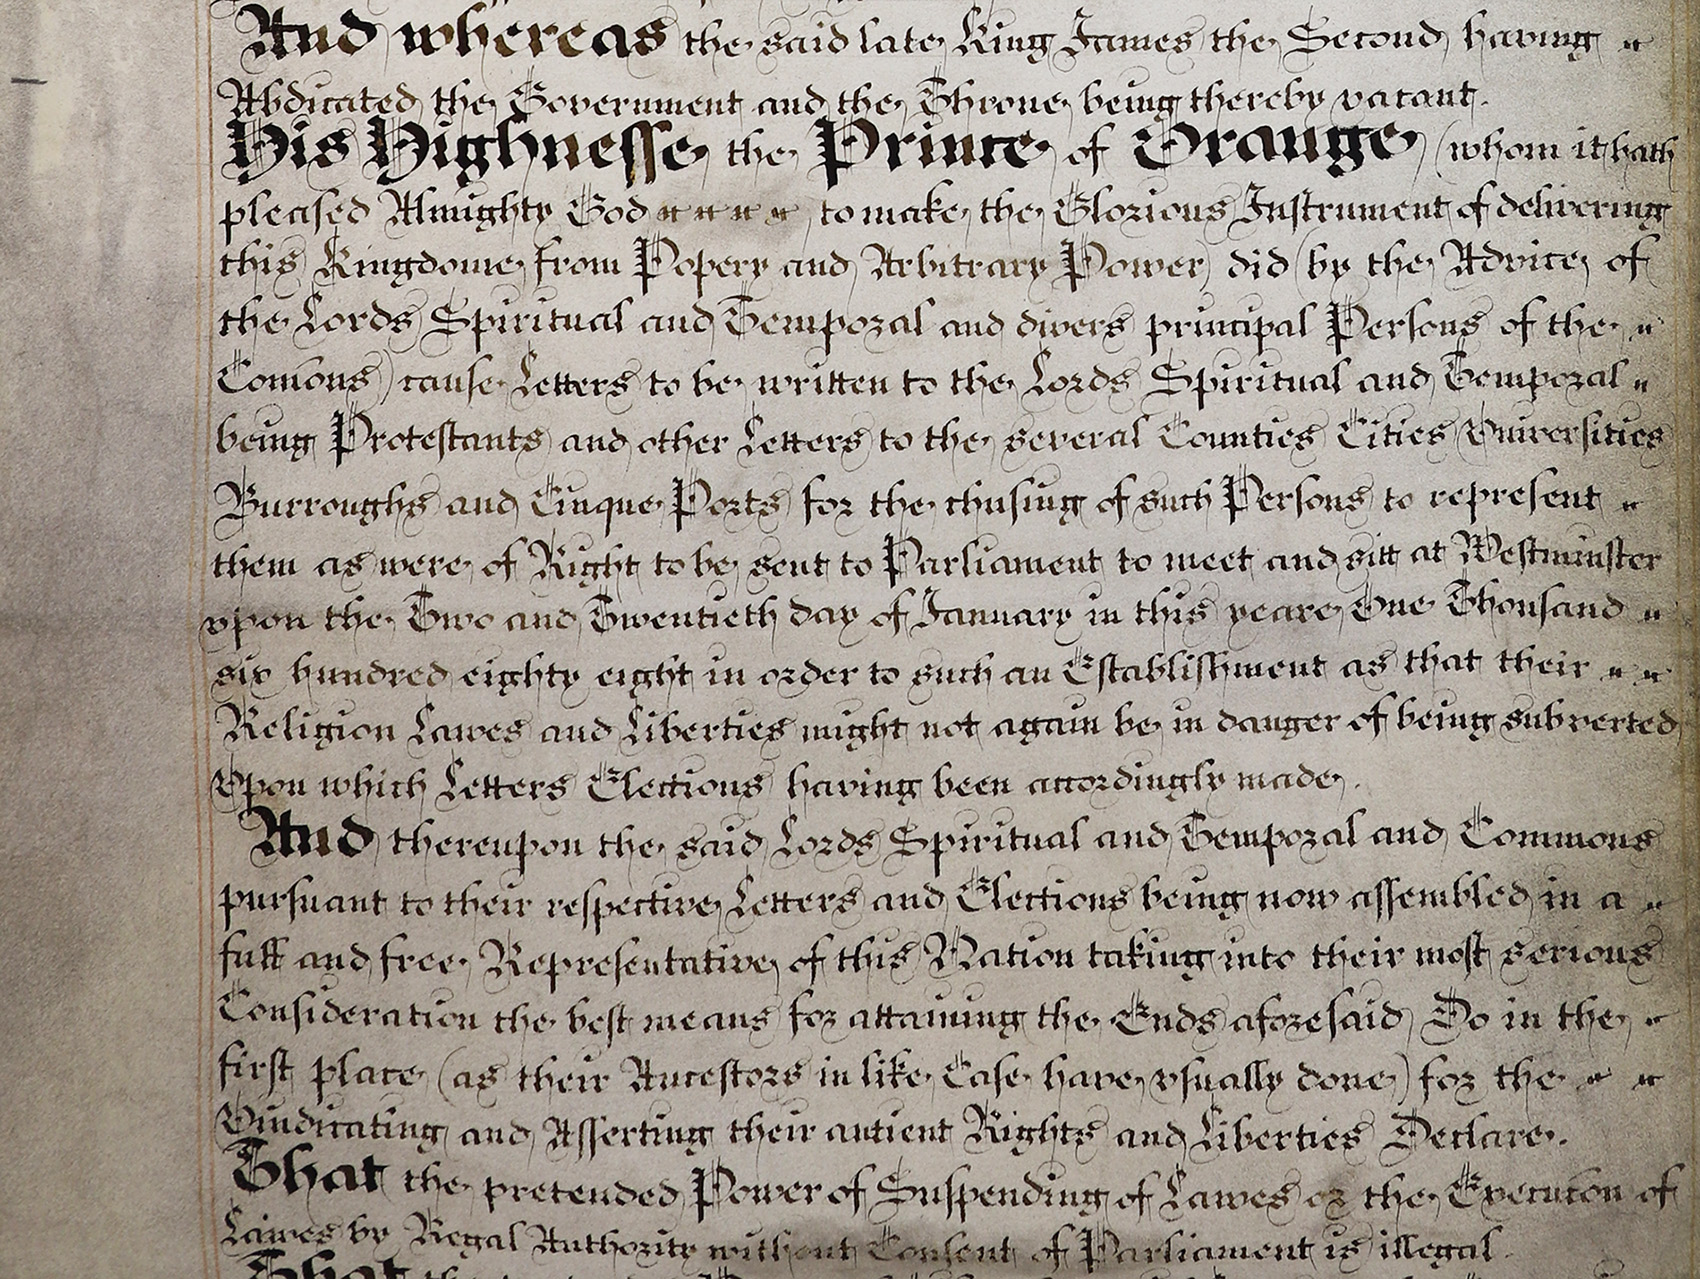 And whereas the said late King James the Second having
Abdicated the Government and the Throne being thereby vacant.
His Highnesse the Prince of Orange (whom it hath
pleased Almighty God to make the Glorious Instrument of delivering
this Kingdome from Popery and Arbitrary Power) did (by the Advice of
the Lords Spirituall and Temporal and divers principal Persons of the
Comons) cause Letters to be written to the Lords Spiritual and Temporal
being Protestants and other Letters to the several Counties Cities Universities
Burroughs and Cinque Ports for the chusing of such Persons to represent
them as were of Right to be sent to Parliament to meet and sitt at Westminster
vpon the Two and Twentieth day of January in this yeare One Thousand
six hundred eighty eight in order to such an Establishment as that their
Religion Lawes and Liberties might not again be in danger of being subverted
Vpon which Letters Elections having been accordingly made.
And thereupon the said Lords Spiritual and Temporal and Commons
pursuant to their respective Letters and Elections being now assembled in a
full and free Representative of this Nation taking into their most serious
Consideration the best means for attaining the Ends aforesaid Do in the
first place (as their Ancestors in like Case have vsually done) for the
Vindicating and Asserting their antient Rights and Liberties Declare.
That the pretended Power of Suspending of Lawes or the Execution of
Lawes by Regal Authority without Consent of Parliament is illegal.
That the